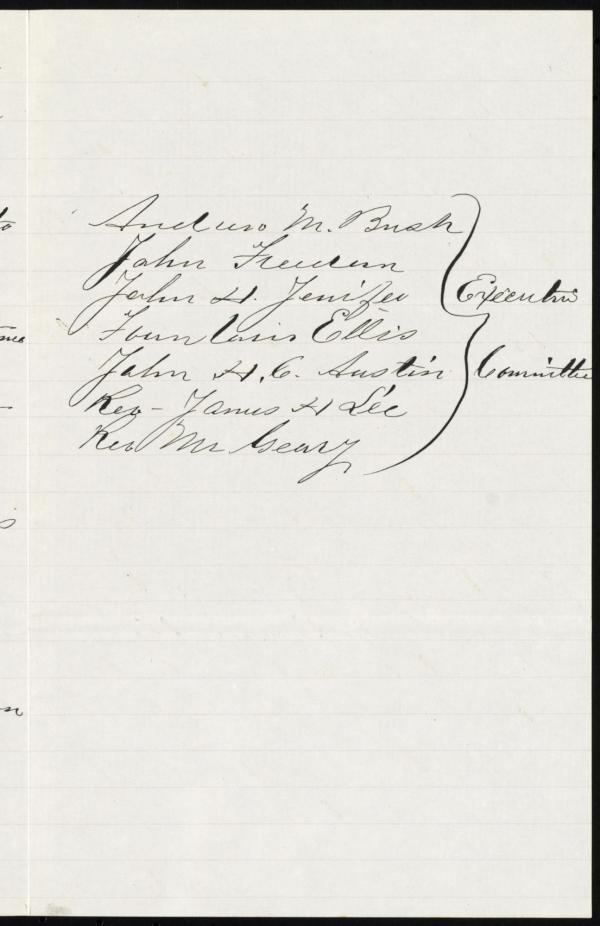 Andrew M. Bush
John Freeman
John H. Jenifer
Executive
Fountain Ellis
John H. C. Austin
Committee
Rev - James H Lee
Rev Mr Geary